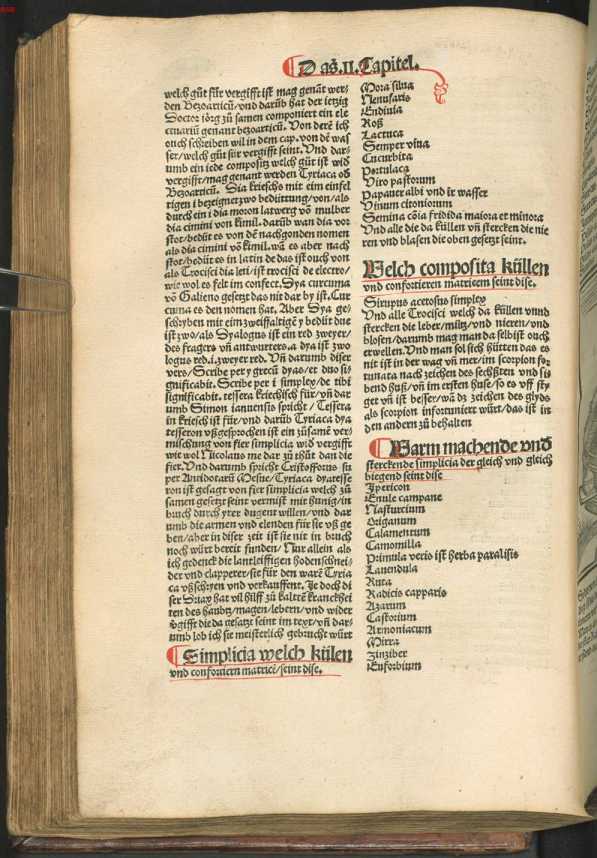 Das .II. Capitel.
welch gůt für vergifft ist mag genãt wer-
den Bezoarticũ/vnd darũb hat der ietzig
Doctor iörg zů samen componiert ein ele
ctuariũ genant bezoarticũ. Von derẽ ich
ouch schreiben wil in dem cap. von dẽ was
ser/welch gůt für vergifft seint. Vnd dar-
umb ein iede composity welch gůt ist wid
vergifft/mag genant werden Tyriaca ob
Bezoarticũ. Dia kriechs mit eim einfel
tigen i bezeignet zwo bedüttung/von/als
durch ein i dia moron latwerg võ mulber
dia cimini von kimil. darũb wan dia vor
stot/bedüt es von dẽ nachgonden nomen
als dia cimini võ kimil. wã es aber nach
stot/bedüt es in latin de das ist ouch von
als Trocisci dia leri/ist trocisci de electro/
wie wol es felt im confect. Dya curcuma
võ Galieno gesetzt das nit dar by ist. Cur
cuma es den nomen hat. Aber Dya ge/
schryben mit eim zweiffaltigẽ y bedüt dne
ist zwo/als Dyalogus ist ein red zweyer/
des fragers vñ antwurters. a dya ist zwo
logus red .i. zweyer red. Vñ darumb diser
vers/Scribe per y grecũ dyas/et duo si-
gnificabit. Scribe per i simplex/de tibi
significabit. tessera kriechisch für/vñ dar
umb Simon ianuensis spricht/Tessera
in kriesch ist für/vnd darũb Tyriaca dya
tesseron vßgesprochen ist ein zůsamẽ ver/
mischung von fier simplicia wid vergifft
wie wol Nicolaus me dar zů thůt dan die
fier. Vnd darumb spricht Cristofforus su
per Antidotarũ Mesue/Tyriaca dyatesse
ron ist gesagt von fier simplicia welch zů
samen gesetzt seint vermist mit hunig/in
bruch durch yrer dugent willen/vnd dar
umb die armen vnd elenden für sie vß ge
ben/aber in diser zeit ist sie nit in bruch
noch würt bereit funden/Nur allein als
ich gedenck die lantleiffigen hodenschnei-
der vnd clapperer/sie für den warẽ Tyria
ca vßschryen vnd verkauffent. Je doch di
ser Diax hat vil hilff zů kaltẽ kranckhei
ten des haubtz/magen/lebern/vnd wider
vgifft die da gesatzt seint im text/vñ dar-
umb lob ich sie meisterlich gebrucht würt
Simplicia welch külen
vnd confortiern matricẽ/seint dise.
Mora silua
Nenufaris
Endiuia
Roß
Lactuca
Semper viua
Cucurbita
Portulaca
Viro pastorum
Papauer albi vnd ir wasser
Vinum citoniorum
Semina cõia fridida maiora et minora
Vnd alle die da küllen vñ stercken die nie
ren vnd blasen die oben gesetzt seint.
Welch composita küllen
vnd confortieren matricem seint dise.
Sirupus acetosus simplex
Vnd alle Trocisci welch da küllen vnnd
stercken die leber/miltz/vnd nieren/vnd
blosen/darumb mag man da selbist ouch
erwellen. Vnd man sol sich hütten das es
nit ist in der wag vñ mer/im scorpion for
tunata nach zeichen des sechßten vnd si-
bend huß/vñ im ersten huse/so es vff sty
get vñ ist besser/wã dz zeichen des glyds
als scorpion infortuniert würt/das ist in
den andern zů behalten
Warm machende vnd
sterckende simplicia der gleich vnd gleich
biegend seint dise
Ipericon
Enule campane
Nasturcium
Origanum
Calamentum
Camomilla
Primula veris ist herba paralisis
Lauendula
Ruta
Radicis capparis
Azarum
Castorium
Armoniacum
Mirra
Zinziber
Euforbium